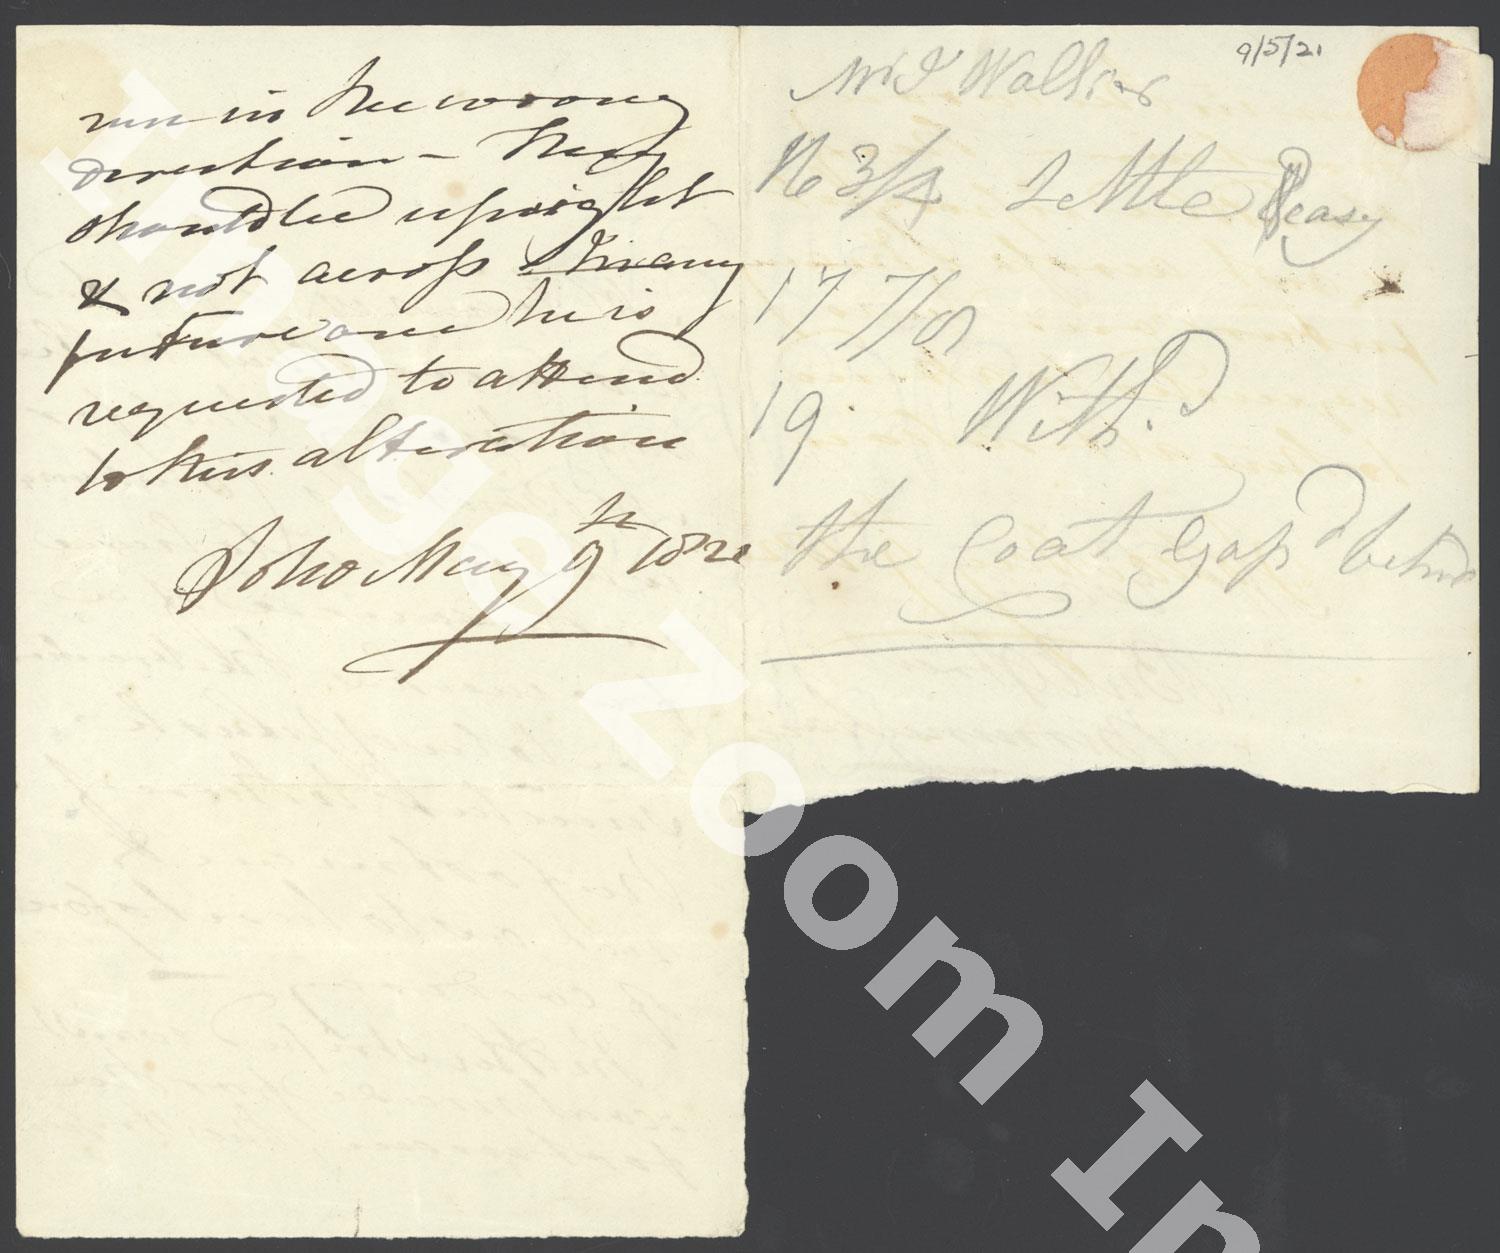 run in the wrong
direction - they
should be upright
& not across - In any
future one he is
requested to attend
to this alteration
Soho May 9th 1821
9/5/21
Mr J Walker
16 3/4 Little easy
17 7/8
19 Width
the Coat Gap'd behind
Image Zoom In